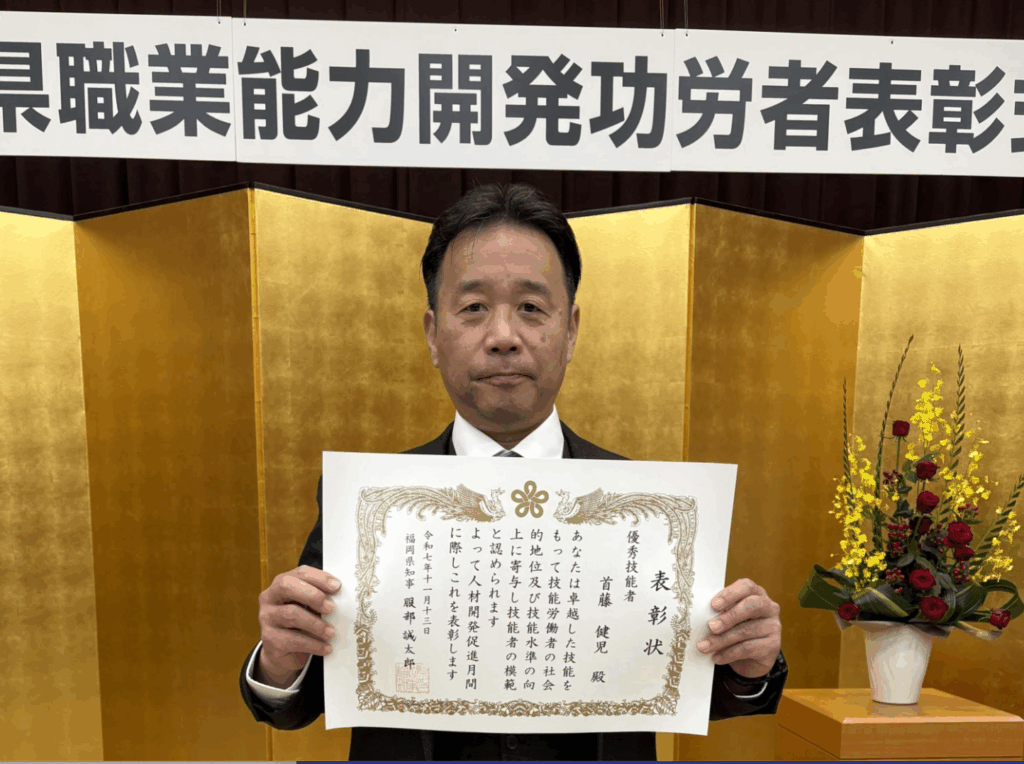 県職業能力開発功労者表彰式
表彰状
優秀技能者
首藤 健児 殿
あなたは卓越した技能を
もって技能労働者の社会
的地位及び技能水準の向
上に寄与し技能者の模範
と認められます
よって人材開発促進月間
に際しこれを表彰します
令和七年十一月十三日
福岡県知事 服部 誠太郎